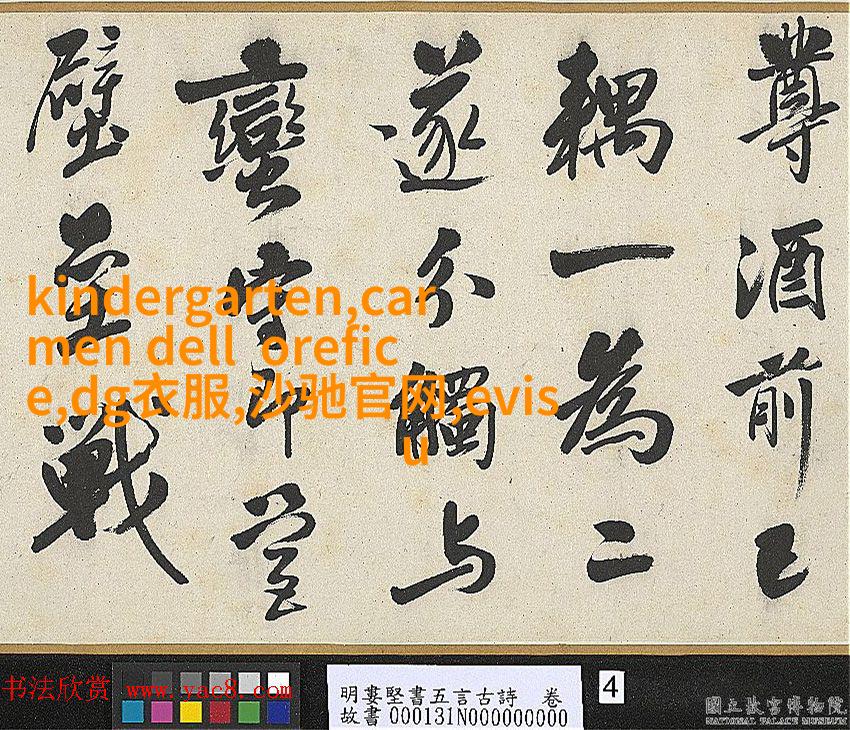 尊酒前已
耦一為二
遂分觸与
蠻守即營
壁壘戰
kindergarten,car
men dell orefic
e,dg衣服,沙驰官网,evis
u
书法欣赏 www.yac8.com
明婁堅書五言古詩 卷
故書000131N000000000
4
國立故宮博物院
NATIONAL PALACE MUSEUM